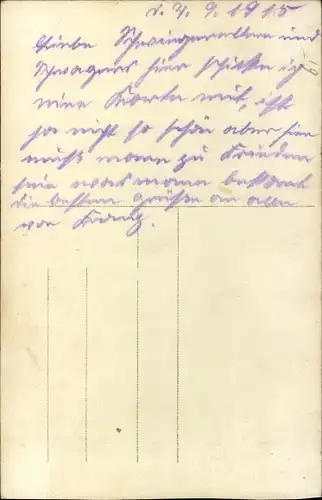 d. 7. 9. 1915
Liebe Schwiegereltern und
Schwagers hier schicke ich
eine Karte mit, ist
ja nicht so schön aber hier
muß mann zu Frieden
sein was mann bekommt
die besten Grüße an alle
von Franz.